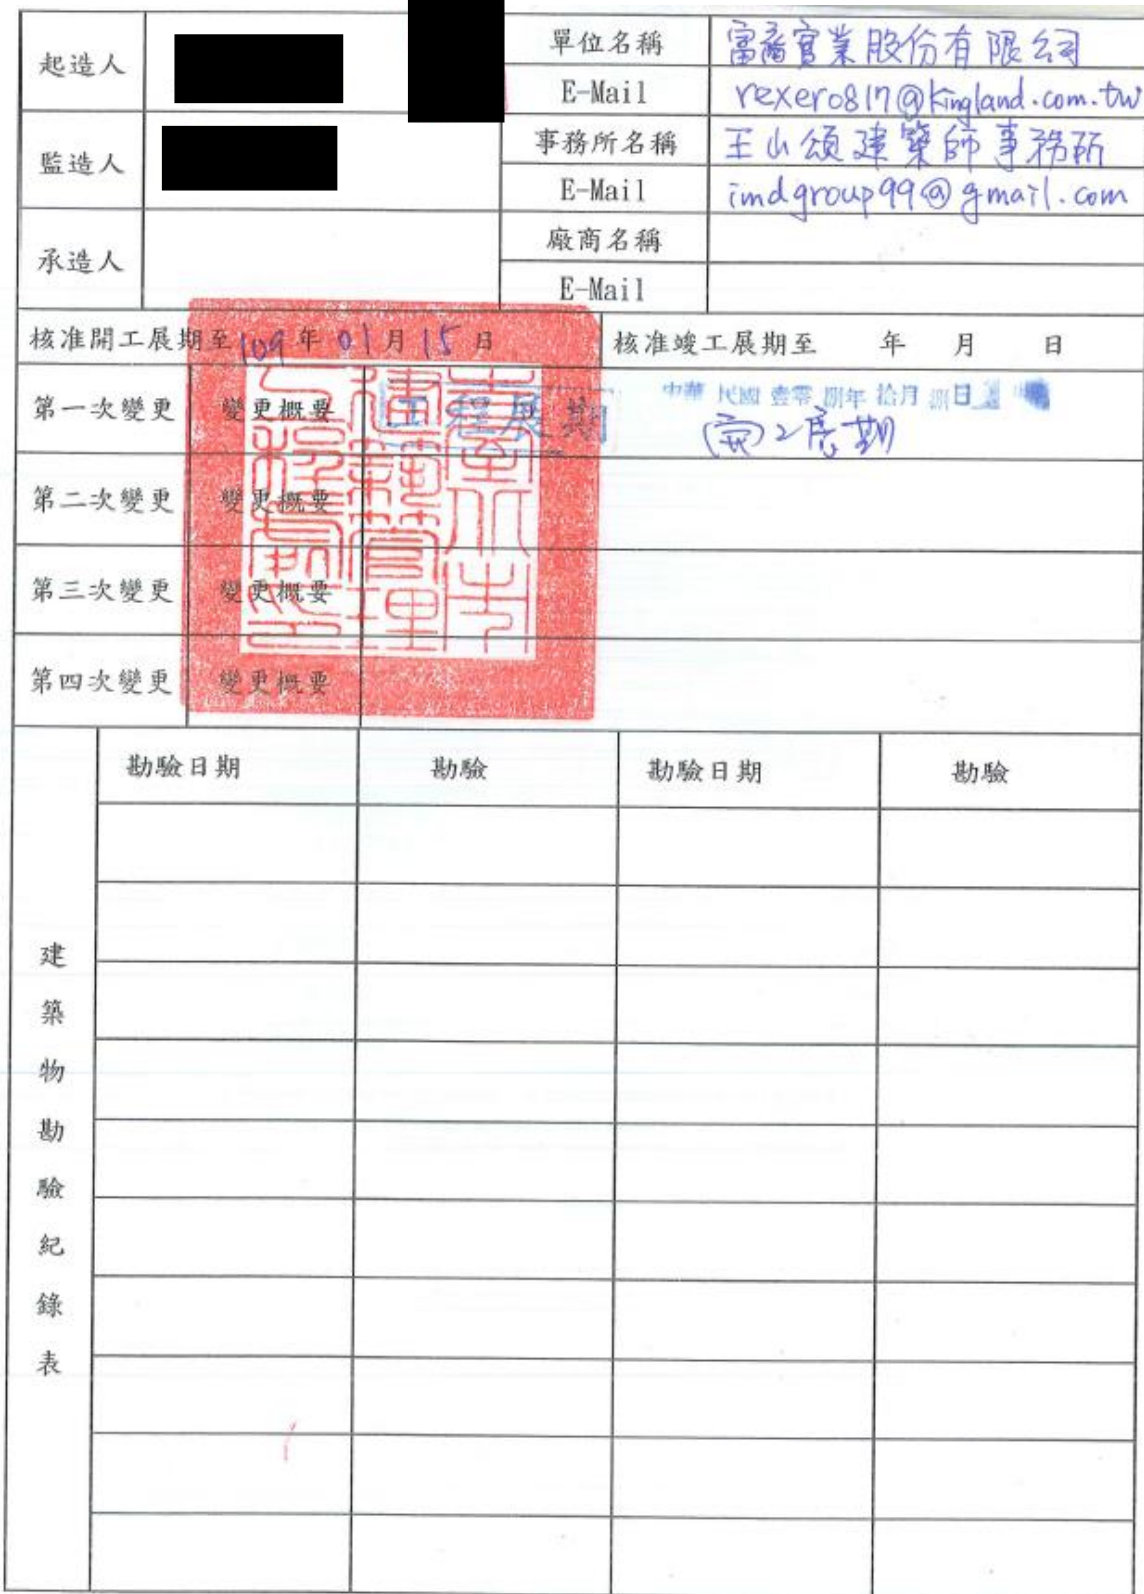 起造人
單位名稱 富裔實業股份有限公司
E-Mail rexero817@kingland.com.tw
監造人
事務所名稱 王山頌建築師事務所
E-Mail imdgroup99@gmail.com
承造人
廠商名稱
E-Mail
核准開工展期至109年01月15日 核准竣工展期至 年 月 日
第一次變更 變更概要 工程展期 中華民國壹零捌年拾月捌日
展期
第二次變更 變更概要
第三次變更 變更概要
第四次變更 變更概要
臺北市
建築管理
工程處印
勘驗日期 勘驗 勘驗日期 勘驗
建築物勘驗紀錄表